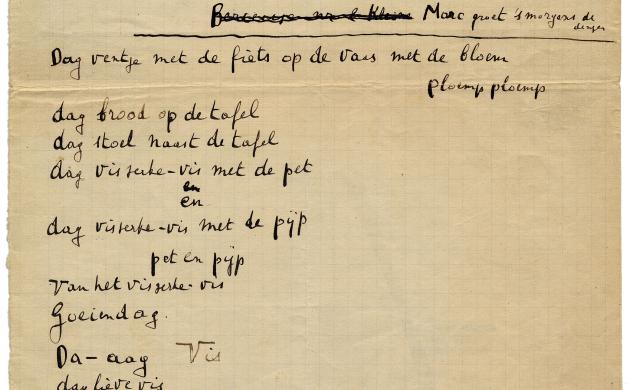 Berceuse nr 2 Klein Marc groet 's morgens de dingen
Dag ventje met de fiets op de vaas met de bloem
ploemp ploemp
dag brood op de tafel
dag stoel naast de tafel
dag visserke-vis met de pet
en
en
dag visserke-vis met de pijp
pet en pijp
Van het visserke-vis
Goeiendag.
Da-aag Vis
dag lieve vis